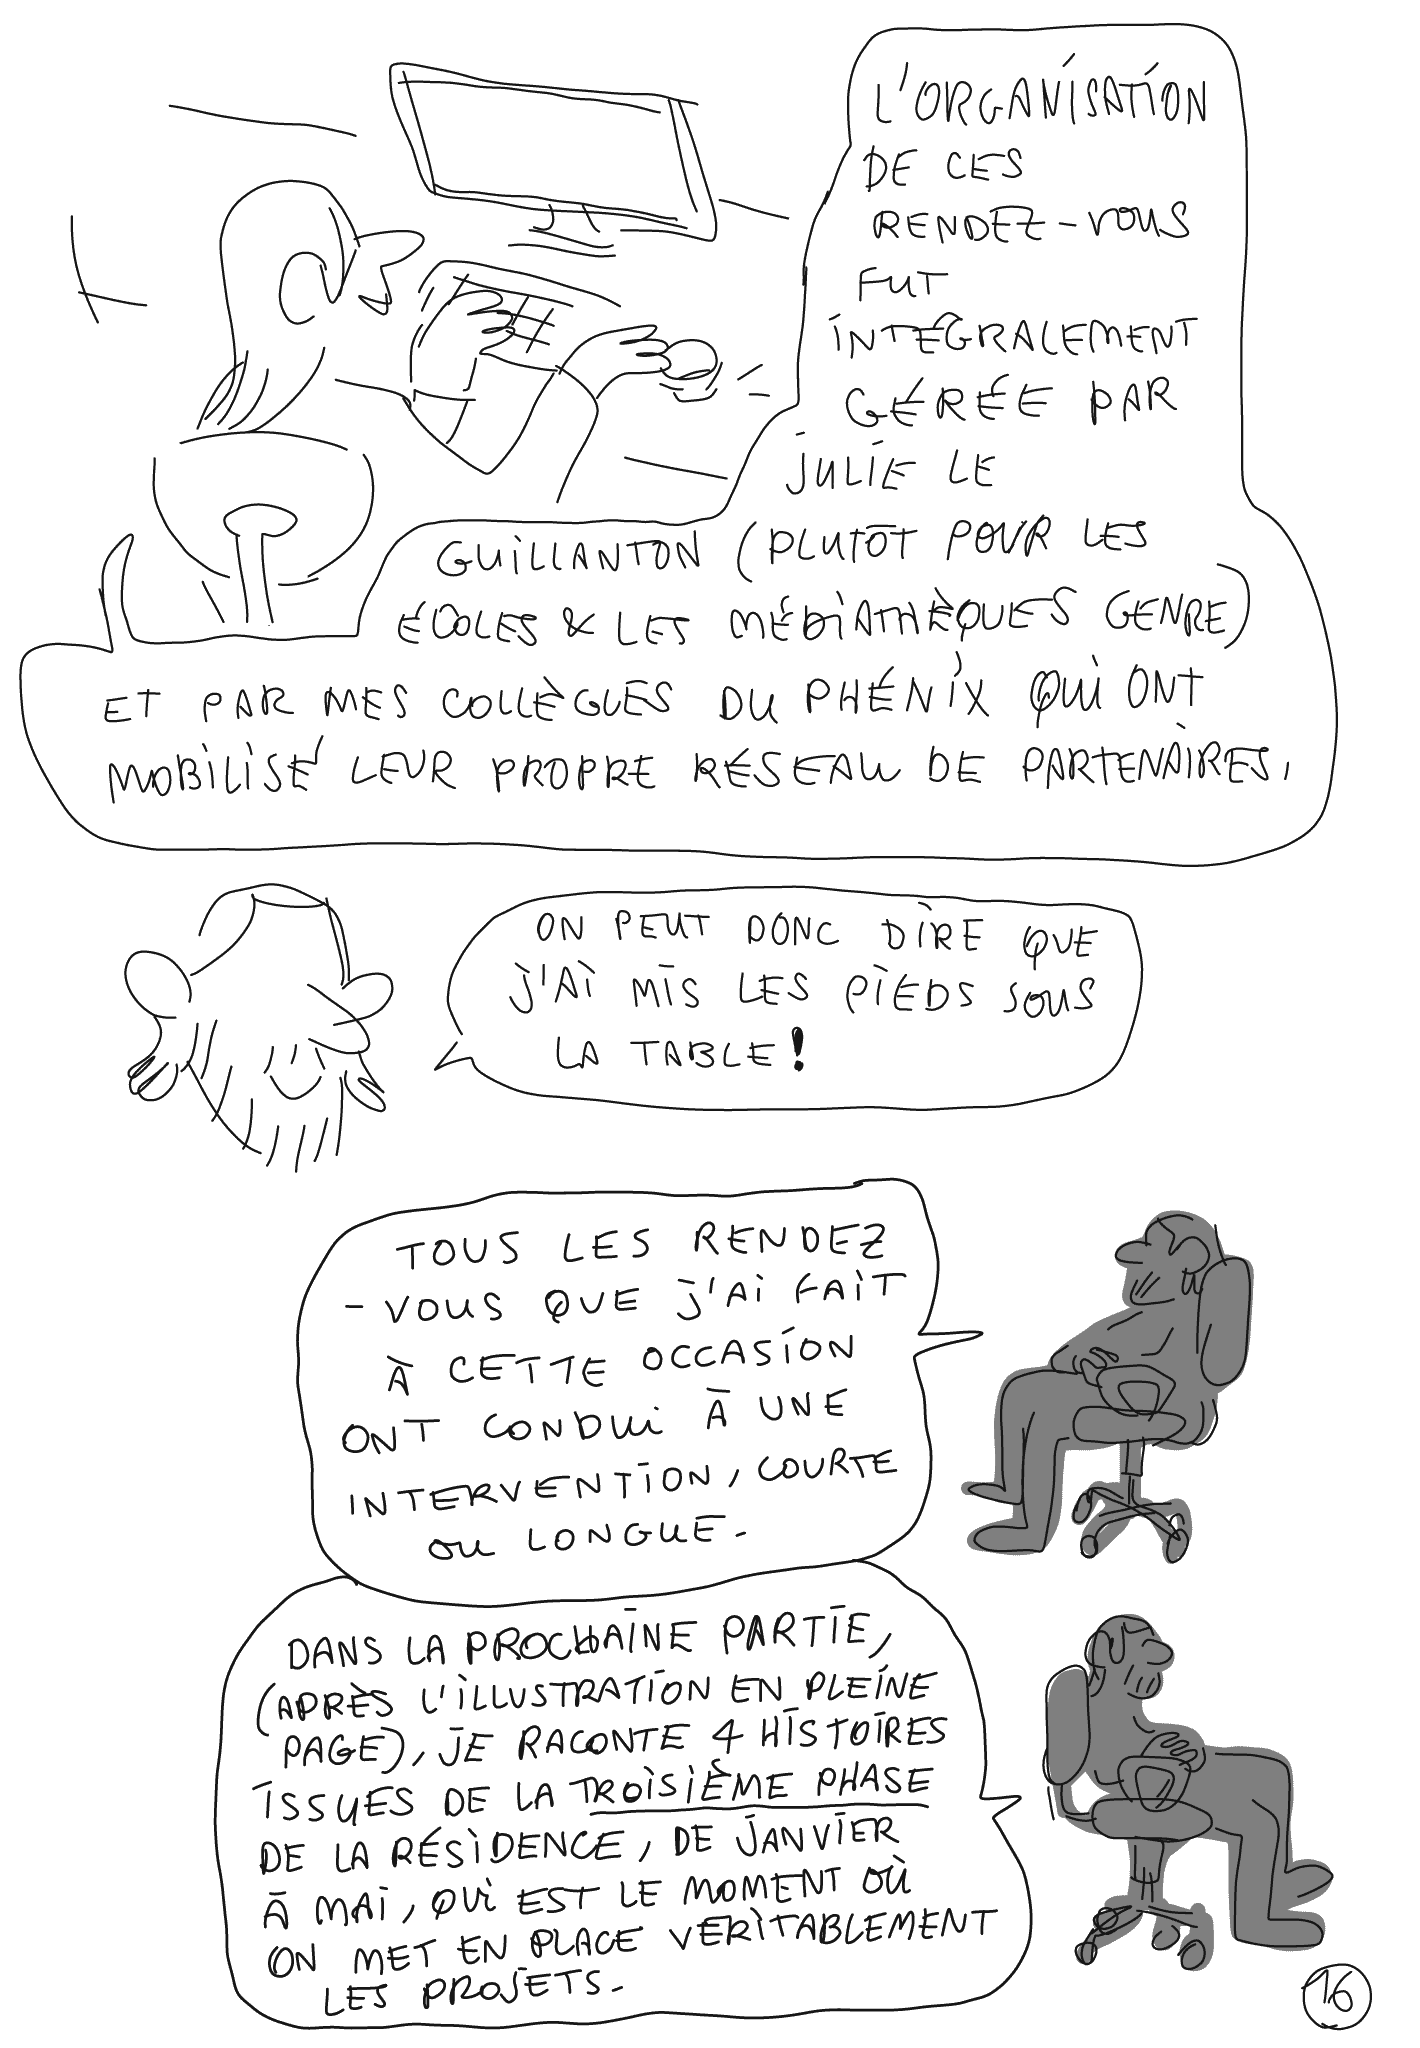 L'ORGANISATION
DE CES
RENDEZ-VOUS
FUT
INTÉGRALEMENT
GÉRÉE PAR
JULIE LE
GUILLANTON (PLUTÔT POUR LES
ÉCOLES & LES MÉDIATHÈQUES GENRE)
ET PAR MES COLLÈGUES DU PHÉNIX QUI ONT
MOBILISÉ LEUR PROPRE RÉSEAU DE PARTENAIRES.
ON PEUT DONC DIRE QUE
J'AI MIS LES PIEDS SOUS
LA TABLE!
TOUS LES RENDEZ
-VOUS QUE J'AI FAIT
À CETTE OCCASION
ONT CONDUI À UNE
INTERVENTION, COURTE
OU LONGUE.
DANS LA PROCHAINE PARTIE,
(APRÈS L'ILLUSTRATION EN PLEINE
PAGE), JE RACONTE 4 HISTOIRES
ISSUES DE LA TROISIÈME PHASE
DE LA RÉSIDENCE, DE JANVIER
À MAI, QUI EST LE MOMENT OÙ
ON MET EN PLACE VERITABLEMENT
LES PROJETS.
16